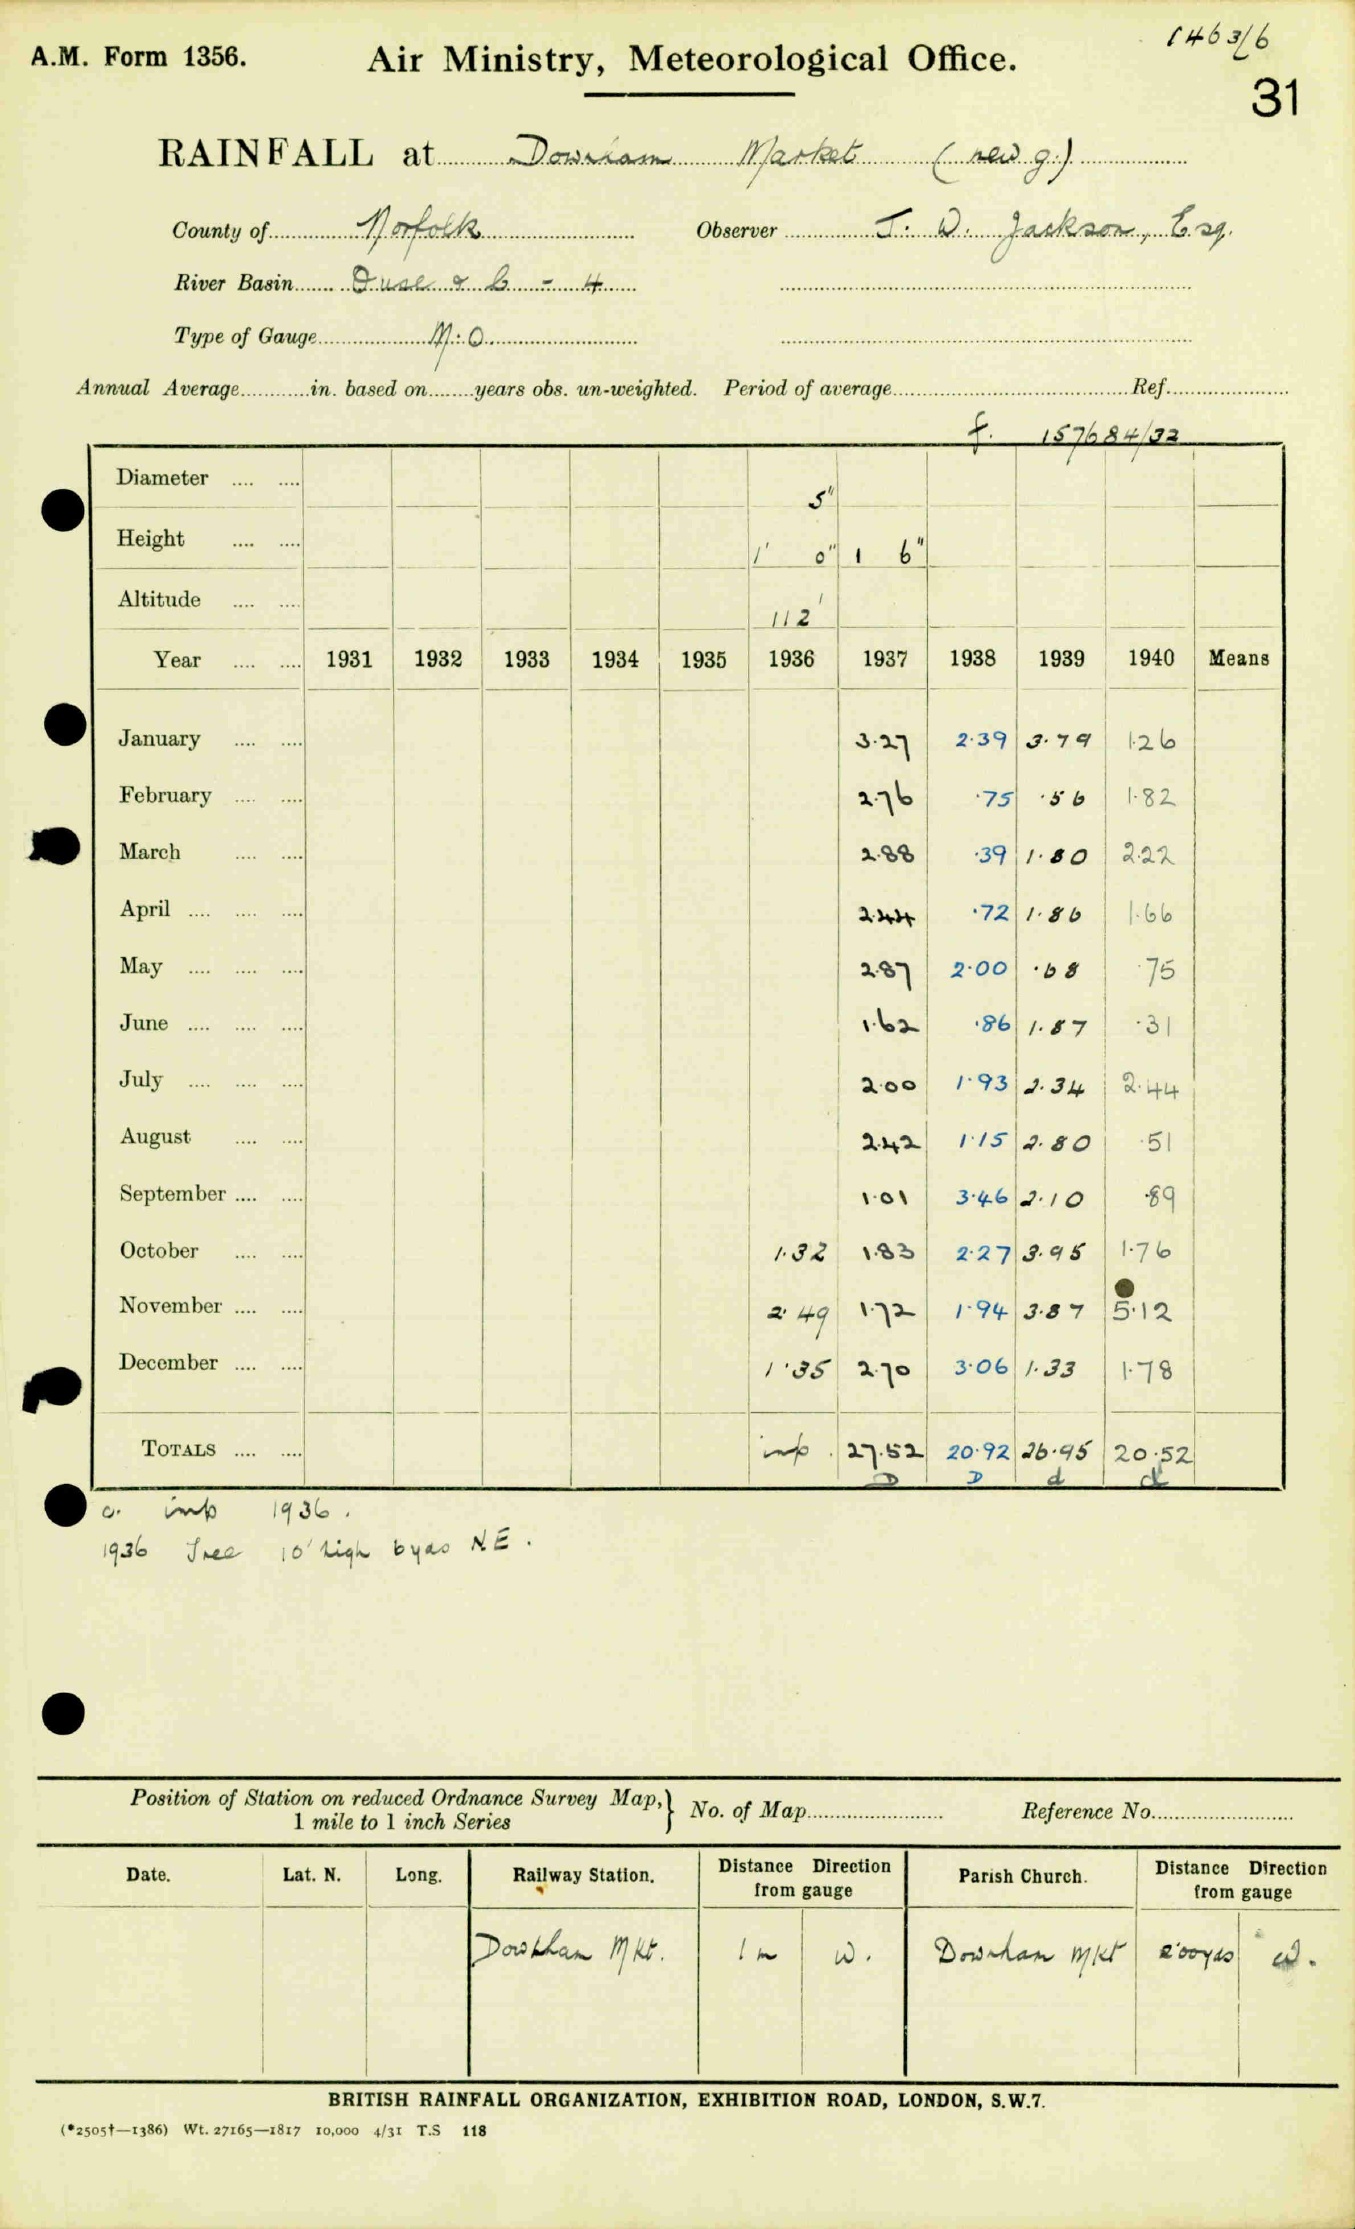 1463/6
A.M. Form 1356. Air Ministry, Meteorological Office.
31
RAINFALL at Downham Market (new g.)
County of Norfolk Observer J. W. Jackson, Esq.
River Basin Ouse & C - 4
Type of Gauge M.O.
Annual Average in. based on years obs. un-weighted. Period of average Ref.
f. 157684/32
Diameter 5"
Height 1' 0" 1 6"
Altitude 112'
Year 1931 1932 1933 1934 1935 1936 1937 1938 1939 1940 Means
January 3.27 2.39 3.79 1.26
February 2.76 .75 .56 1.82
March 2.88 .39 1.80 2.22
April 2.44 .72 1.86 1.66
May 2.87 2.00 .68 .75
June 1.62 .86 1.87 .31
July 2.00 1.93 2.34 2.44
August 2.42 1.15 2.80 .51
September 1.01 3.46 2.10 .89
October 1.32 1.83 2.27 3.95 1.76
November 2.49 1.72 1.94 3.87 5.12
December 1.35 2.70 3.06 1.33 1.78
TOTALS imp. 27.52 20.92 26.95 20.52
D D d d
c. imp 1936.
1936 Tree 10' high 6 yds NE.
Position of Station on reduced Ordnance Survey Map, } No. of Map Reference No.
1 mile to 1 inch Series
Date. Lat. N. Long. Railway Station. Distance Direction from gauge Parish Church. Distance Direction from gauge
Downham Mkt. 1 m W. Downham Mkt 200 yds W.
BRITISH RAINFALL ORGANIZATION, EXHIBITION ROAD, LONDON, S.W.7.
(*2505†—1386) Wt. 27165—1817 10,000 4/31 T.S 118